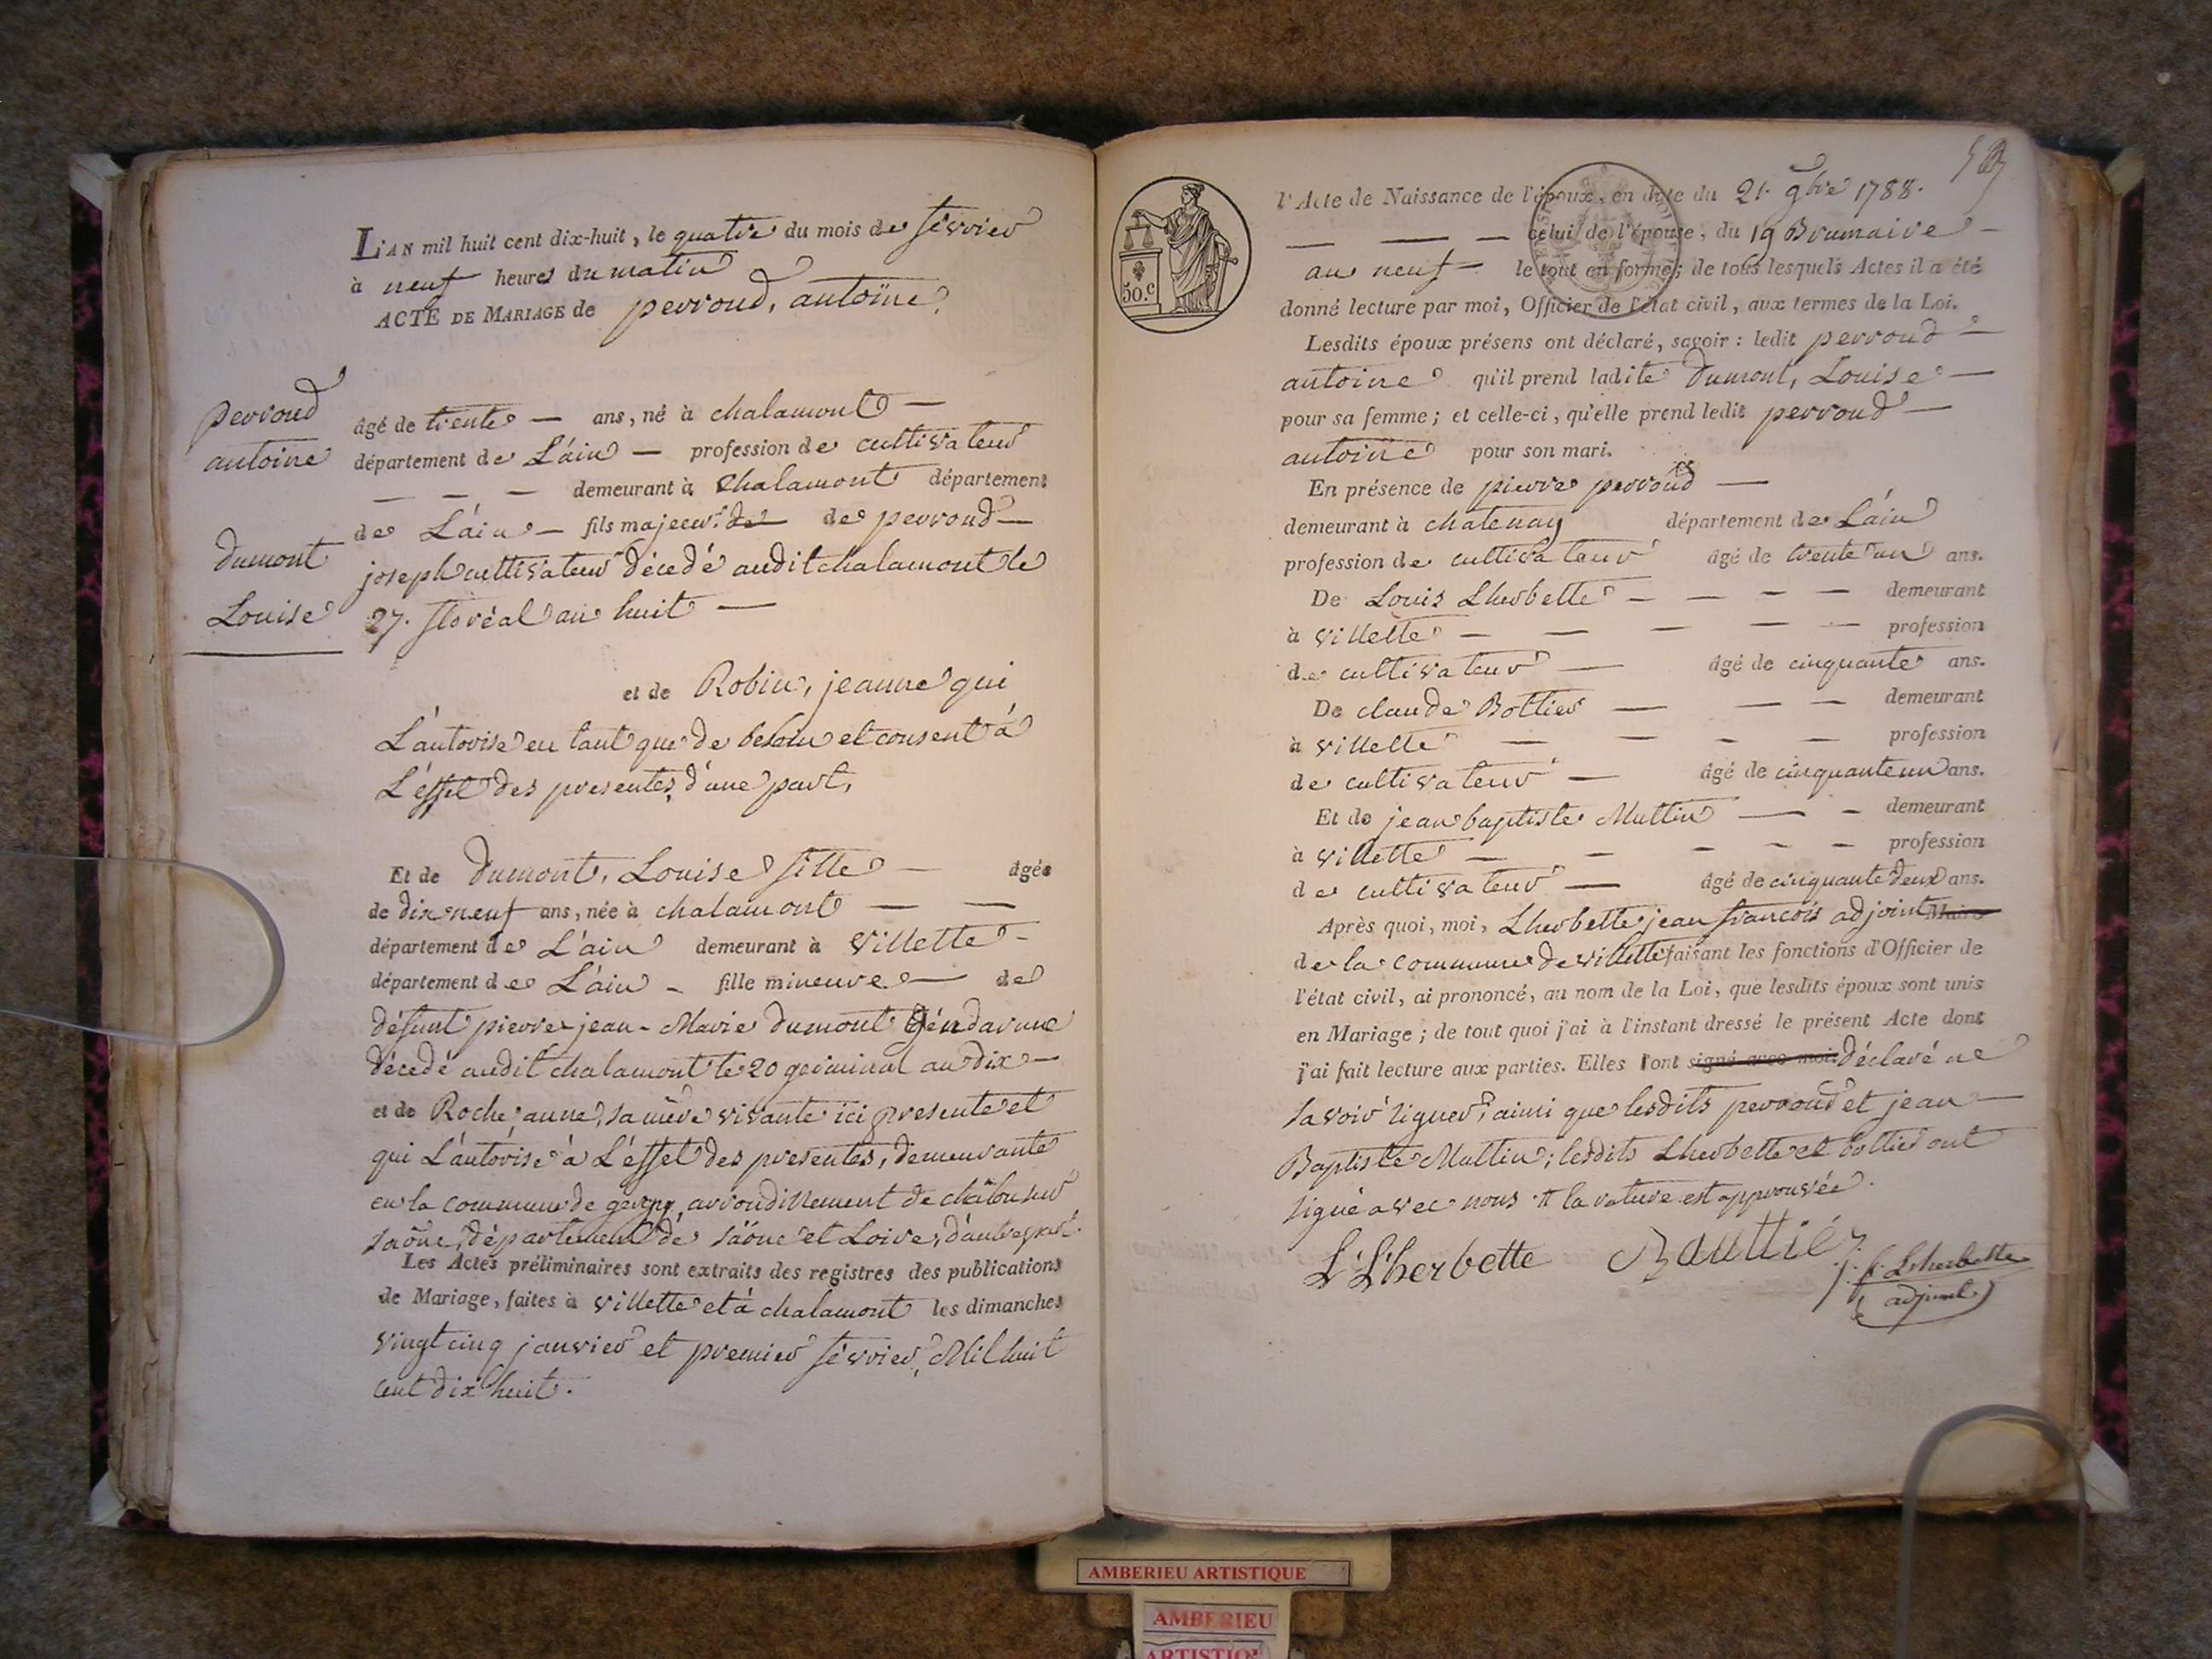 L'AN mil huit cent dix-huit, le quatre du mois de février
à neuf heures du matin
ACTE DE MARIAGE de perroud, antoine,
perroud
antoine
dumont
Louise
âgé de trente — ans, né à chalamont —
département de L'ain — profession de cultivateur
— — — demeurant à Chalamont département
de L'ain — fils majeur de de perroud —
joseph cultivateur décedé audit chalamont le
27. floréal an huit —
et de Robin, jeanne qui
L'autorise en tant que de besoin et consent à
L'effet des presentes, d'une part,
Et de dumont, Louise fille — âgée
de dix neuf ans, née à chalamont — —
département de L'ain demeurant à Villette -
département de L'ain - fille mineure — de
défunt pierre-jean-Marie dumont Géndarme
décedé audit chalamont le 20 germinal an dix —
et de Roche, anne, sa mère vivante ici presente et
qui L'autorise à L'effet des presentes, demeurante
en la commune de gergy, arrondissement de châlon sur
saône, département de saône et Loire, d'autre part.
Les Actes préliminaires sont extraits des registres des publications
de Mariage, faites à villette et à chalamont les dimanches
vingt cinq janvier et premier février, Mil huit
cent dix huit.
50.c
l'Acte de Naissance de l'époux, en date du 21. 9bre 1788.
— — — celui de l'épouse, du 19 Brumaire -
an neuf - le tout en forme; de tous lesquels Actes il a été
donné lecture par moi, Officier de l'état civil, aux termes de la Loi.
Lesdits époux présens ont déclaré, savoir : ledit perroud —
antoine qu'il prend ladite dumont, Louise —
pour sa femme; et celle-ci, qu'elle prend ledit perroud —
antoine pour son mari.
En présence de pierre perroud —
demeurant à chatenay département de L'ain
profession de cultivateur âgé de trente un ans.
De Louis Lherbette - — - — demeurant
à villette - — — — — profession
de cultivateur — âgé de cinquante ans.
De claude Bottier — — - demeurant
à villette — — - — profession
de cultivateur — âgé de cinquante un ans.
Et de jean baptiste Muttin — - demeurant
à villette — - - - - profession
de cultivateur — âgé de cinquante deux ans.
Après quoi, moi, Lherbette jean françois adjoint Maire
de la commune de villette faisant les fonctions d'Officier de
l'état civil, ai prononcé, au nom de la Loi, que lesdits époux sont unis
en Mariage; de tout quoi j'ai à l'instant dressé le présent Acte dont
j'ai fait lecture aux parties. Elles l'ont signé avec moi. déclaré ne
savoir signer, ainsi que lesdits perroud et jean —
Baptiste Muttin; lesdits Lherbette et bottier ont
signé avec nous. la rature est approuvée.
L. Lherbette Bauttiéz
j. f. Lherbette
adjoint
AMBERIEU ARTISTIQUE
AMBERIEU
ARTISTIQUE